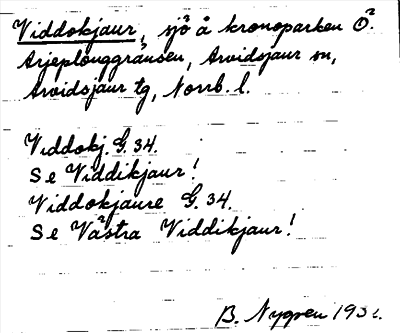 Viddokjaur, sjö å kronoparken Ö.
Arjeplouggränsen, Arvidsjaur sn,
Arvidsjaur tg, Norrb. l.
Viddokj. G. 34.
Se Viddikjaur!
Viddokjaure G. 34.
Se Västra Viddikjaur!
B. Nygren